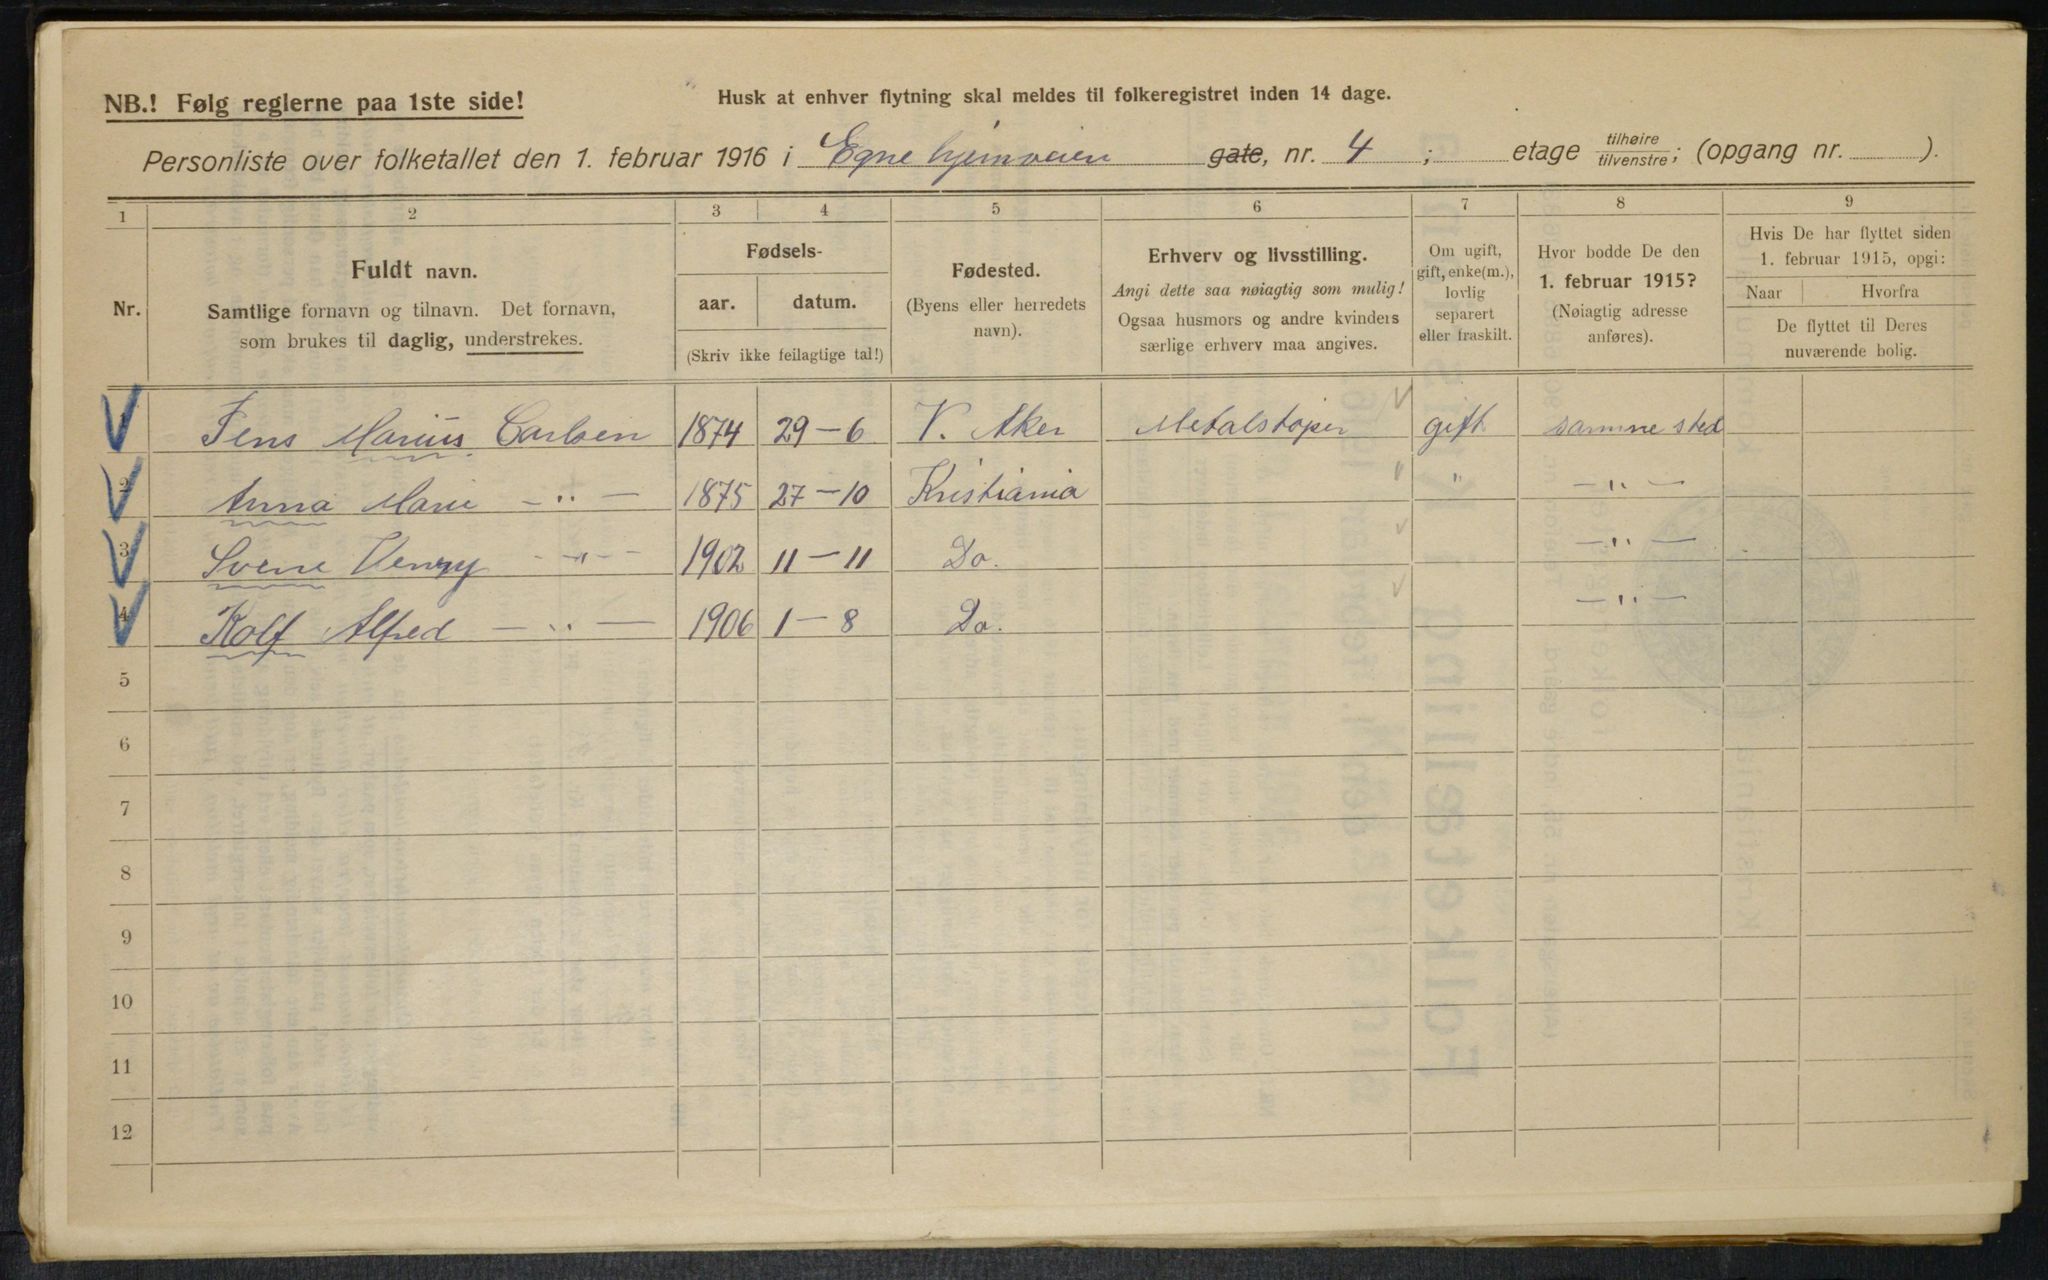 NB.! Følg reglerne paa 1ste side!
Husk at enhver flytning skal meldes til folkeregistret inden 14 dage.
Personliste over folketallet den 1. februar 1916 i Egne hjemveien gate, nr. 4 ; etage tilhøire tilvenstre; (opgang nr. ).
1 2 3 4 5 6 7 8 9
Nr.
Fuldt navn.
Samtlige fornavn og tilnavn. Det fornavn,
som brukes til daglig, understrekes.
Fødsels-
aar. datum.
(Skriv ikke feilagtige tal!)
Fødested.
(Byens eller herredets
navn).
Erhverv og livsstilling.
Angi dette saa nøiagtig som mulig!
Ogsaa husmors og andre kvinders
særlige erhverv maa angives.
Om ugift,
gift, enke(m.),
lovlig
separert
eller fraskilt.
Hvor bodde De den
1. februar 1915?
(Nøiagtig adresse
anføres).
Hvis De har flyttet siden
1. februar 1915, opgi:
Naar Hvorfra
De flyttet til Deres
nuværende bolig.
1 Jens Marius Carlsen 1874 29-6 V. Aker Metalstøper gift samme sted
2 Anna Marie — " — 1875 27-10 Kristiania " — " —
3 Sverre Henry — " — 1902 11-11 Do. — " —
4 Rolf Alfred — " — 1906 1-8 Do. — " —
5
6
7
8
9
10
11
12